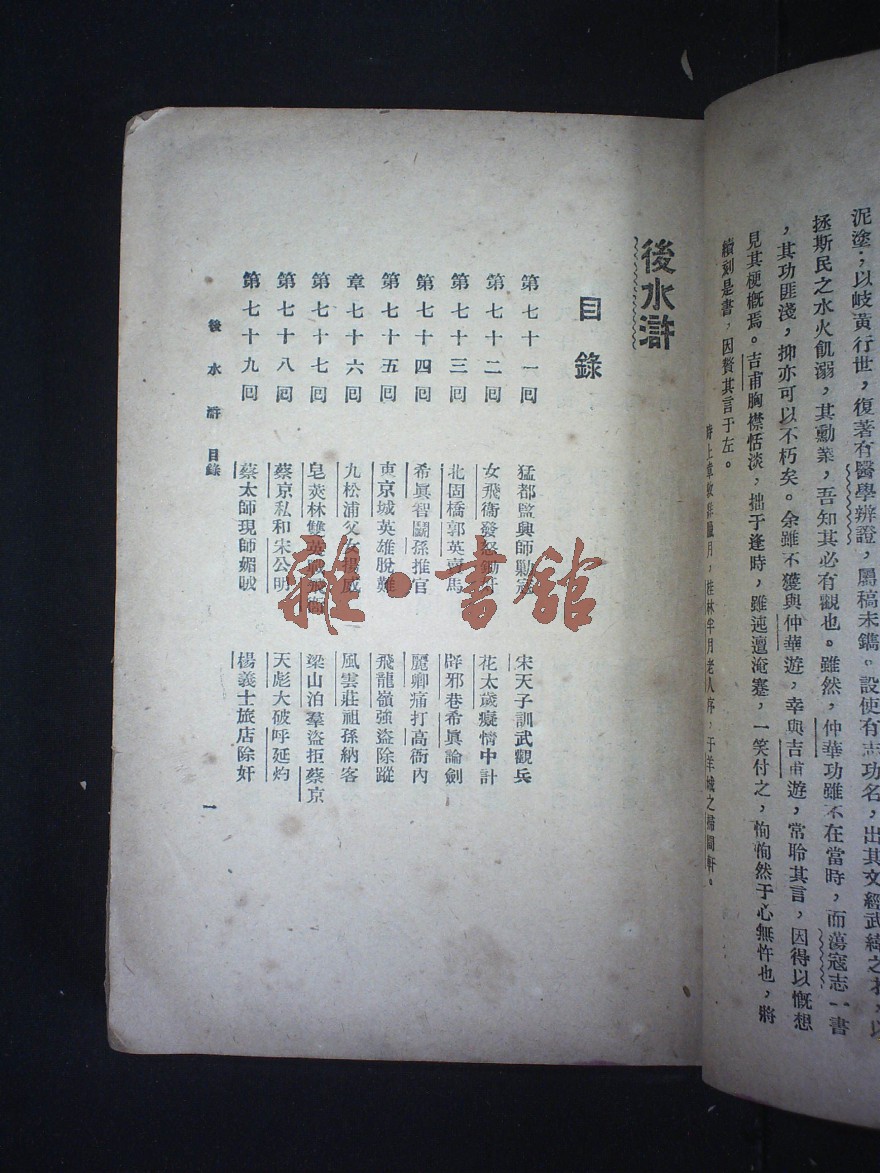 泥塗;以岐黃行世,復著有醫學辨證,屬稿未鐫。設使有志功名,出其文經武緯之才,以
拯斯民之水火飢溺,其勳業,吾知其必有觀也。雖然,仲華功雖不在當時,而蕩寇志一書
,其功匪淺,抑亦可以不朽矣。余雖不獲與仲華遊,幸與吉甫遊,常聆其言,因得以慨想
見其梗概焉。吉甫胸襟恬淡,拙于逢時,雖迍邅淹蹇,一笑付之,恂恂然于心無忤也,將
續刻是書,因贅其言于左。
臘月,桂林半月老人序,于羊城之歸閒軒。
後水滸
目錄
第七十一回 猛都監興師勦寇 宋天子訓武觀兵
第七十二回 女飛衛發怒鋤奸 花太歲癡情中計
第七十三回 北固橋郭英賣馬 辟邪巷希眞論劍
第七十四回 希眞智鬪孫推官 麗卿痛打高衙內
第七十五回 東京城英雄脫難 飛龍嶺強盜除蹤
章七十六回 九松浦父女揚威 風雲莊祖孫納客
第七十七回 皂莢林雙英戰飛衛 梁山泊羣盜拒蔡京
第七十八回 蔡京私和宋公明 天彪大破呼延灼
第七十九回 蔡太師現師媚賊 楊義士旅店除奸
後水滸 目錄 一
雜·書館